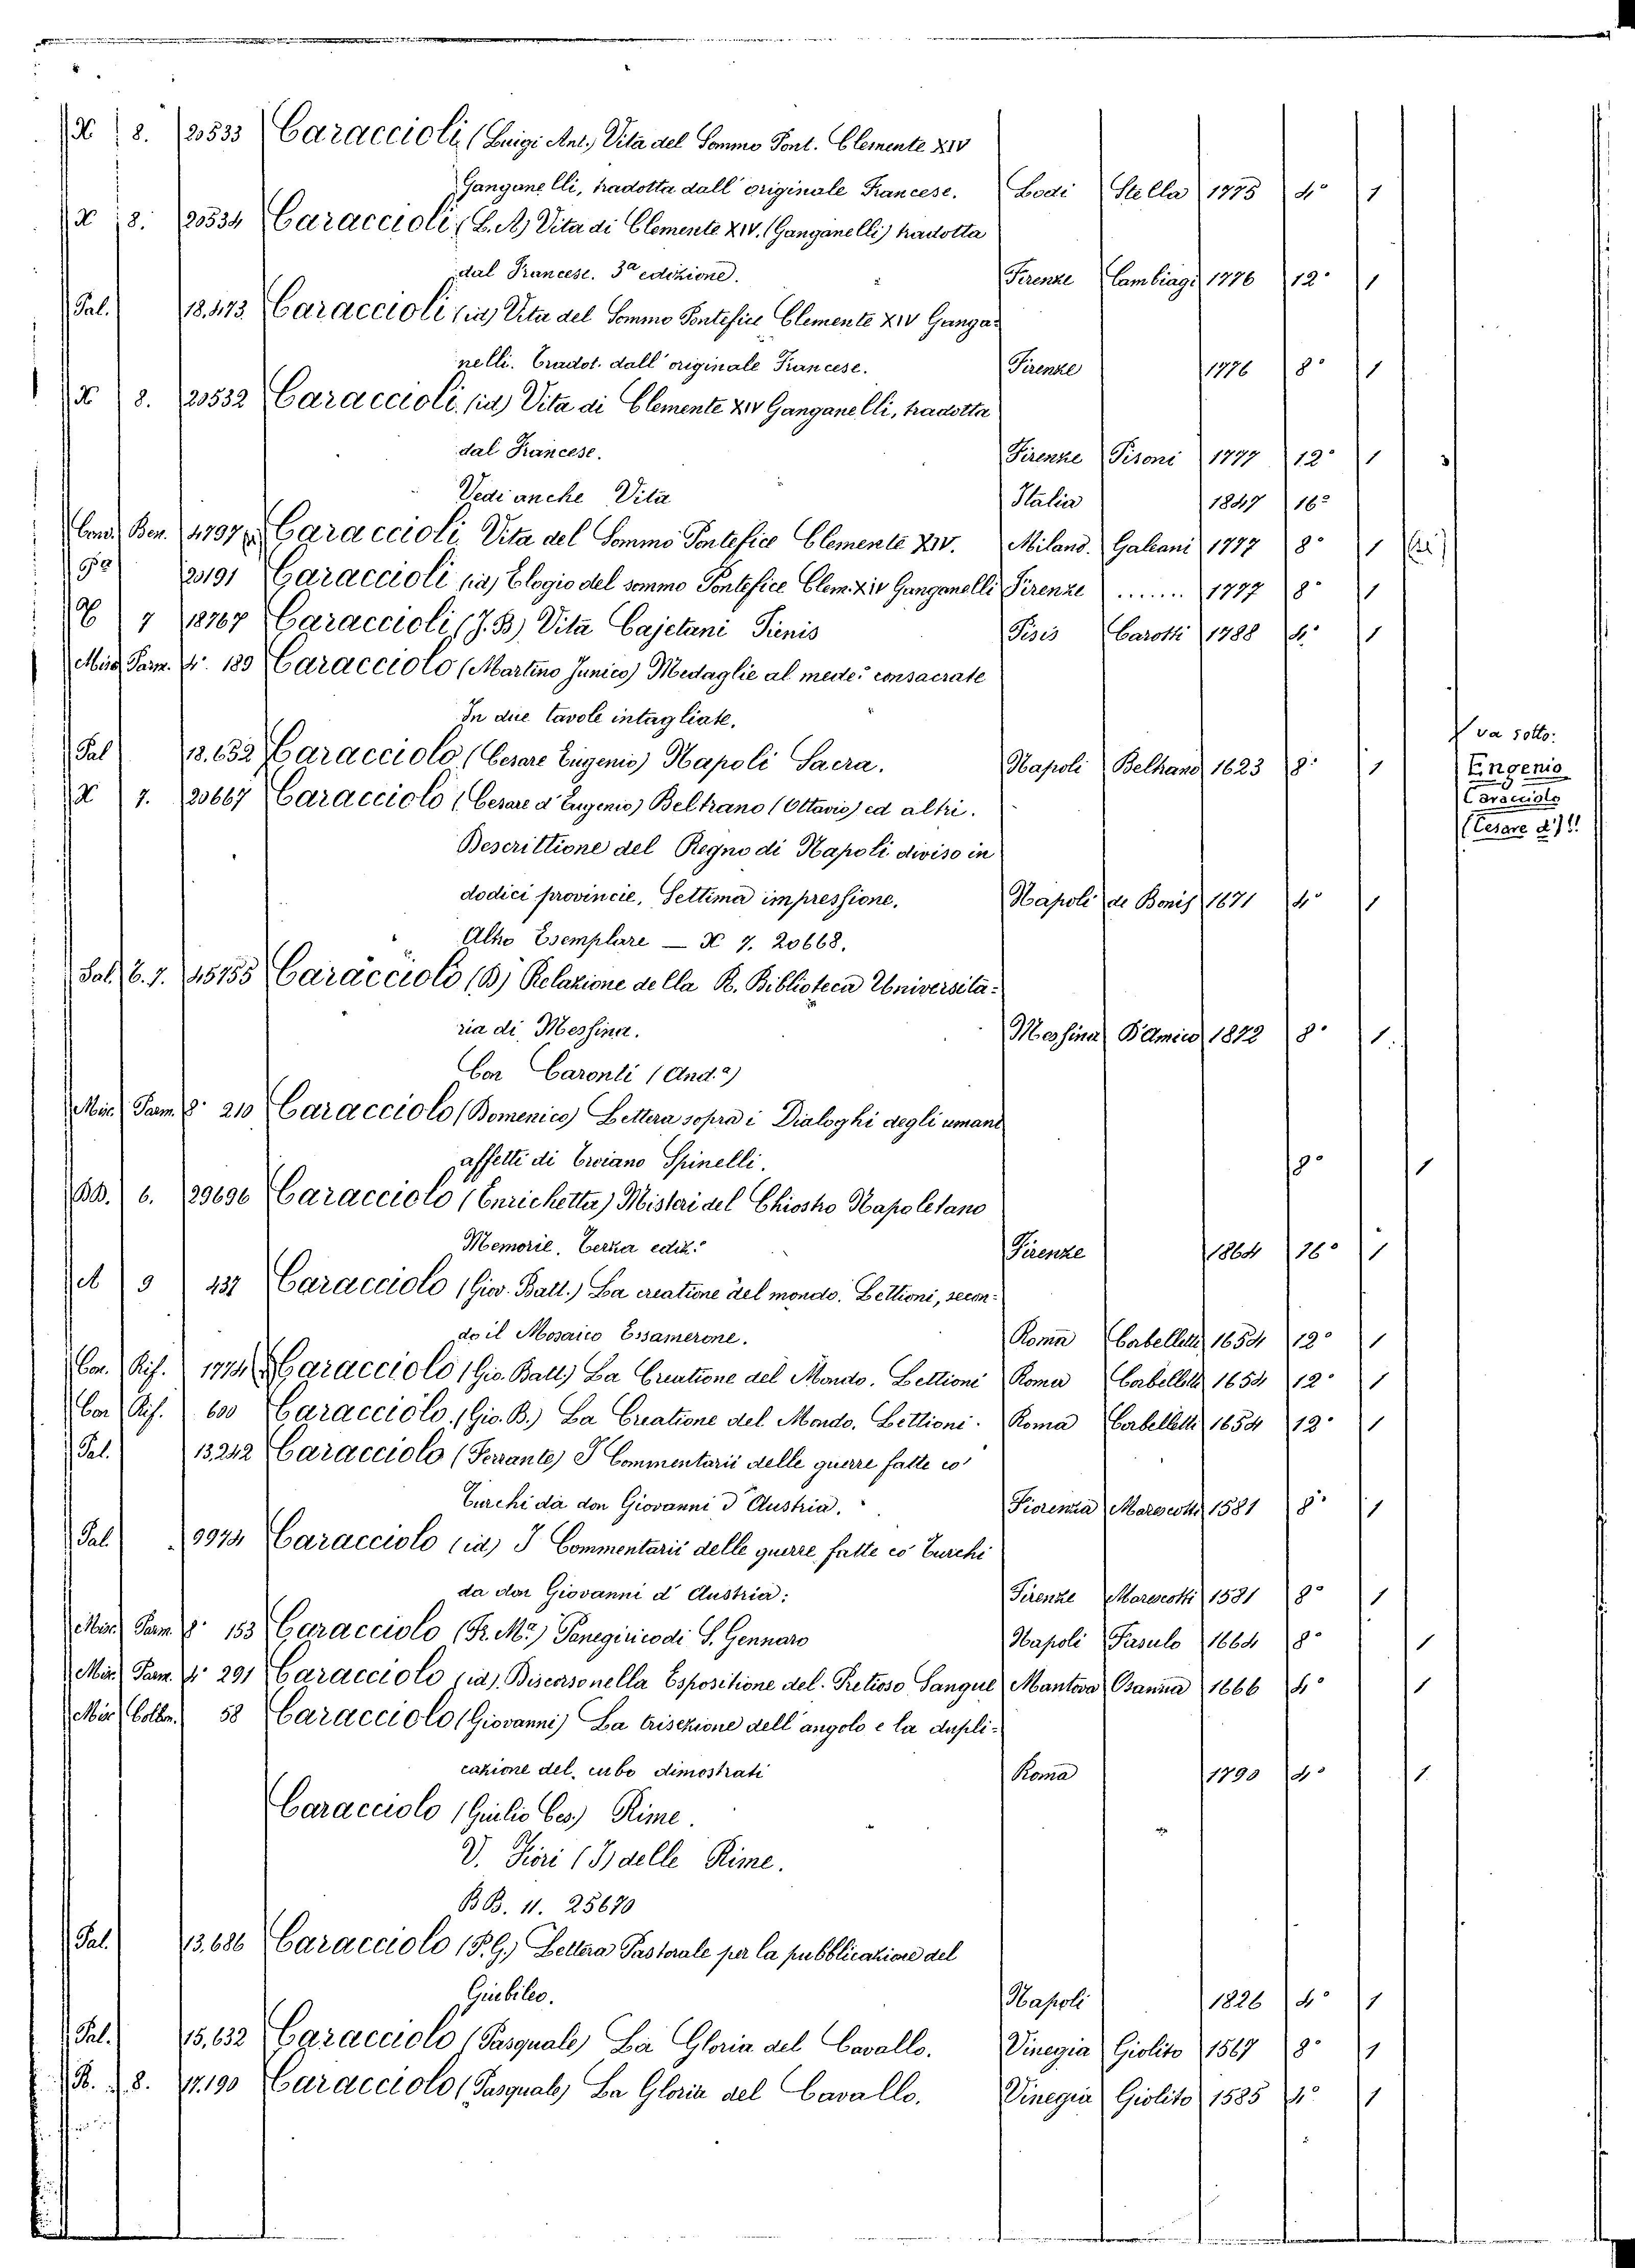 X 8. 20533 Caraccioli (Luigi Ant.) Vita del Sommo Pont. Clemente XIV
Ganganelli, tradotta dall'originale Francese. Lodi Stella 1775 4° 1
X 8. 20534 Caraccioli (L. A.) Vita di Clemente XIV. (Ganganelli) tradotta
dal Francese. 3ª edizione. Firenze Cambiagi 1776 12° 1
Pal. 18.473 Caraccioli (id) Vita del Sommo Pontefice Clemente XIV Ganga-
nelli. Tradot. dall'originale Francese. Firenze 1776 8° 1
X 8. 20532 Caraccioli (id) Vita di Clemente XIV Ganganelli, tradotta
dal Francese. Firenze Pisoni 1777 12° 1
Vedi anche Vita Italia 1847 16°
Cond. Ben. 4797 Caraccioli Vita del Sommo Pontefice Clemente XIV. Milano. Galeani 1777 8° 1
20191 Caraccioli (id) Elogio del sommo Pontefice Clem. XIV Ganganelli Firenze ....... 1777 8° 1
7 18767 Caraccioli (J. B.) Vita Cajetani Tienis Pisis Carotti 1788 4° 1
Misc. Parm. 4° 189 Caracciolo (Martino Junico) Medaglie al mede° consacrate
In due tavole intagliate.
Pal 18.652 Caracciolo (Cesare Eugenio) Napoli Sacra. Napoli Beltrano 1623 8° 1
va sotto:
Engenio
Caracciolo
(Cesare d') !!
X 7. 20667 Caracciolo (Cesare d'Eugenio) Beltrano (Ottavio) ed altri.
Descrittione del Regno di Napoli diviso in
dodici provincie, Settima impressione. Napoli de Bonis 1671 4° 1
Altro Esemplare — X 7. 20668.
Sal. E. 7. 45755 Caracciolo (D) Relazione della R. Biblioteca Universita-
ria di Messina. Messina D'Amico 1872 8° 1.
Con Caronti (And.ª)
Misc. Parm. 8° 210 Caracciolo (Domenico) Lettera sopra i Dialoghi degli umani
affetti di Erviano Spinelli. 8° 1
BB. 6. 29696 Caracciolo (Enrichetta) Misteri del Chiostro Napoletano
Memorie. Terza ediz.e Firenze 1864 16° 1
A 9 437 Caracciolo (Giov. Batt.) La creatione del mondo. Lettioni, secon-
do il Mosaico Essamerone. Roma Corbelletti 1654 12° 1
Cor. Rif. 1774 Caracciolo (Gio. Batt.) La Creatione del Mondo. Lettioni Roma Corbelletti 1654 12° 1
Cor Rif. 600 Caracciolo (Gio. B.) La Creatione del Mondo. Lettioni. Roma Corbelletti 1654 12° 1
Pal. 13.242 Caracciolo (Ferrante) I Commentarii delle guerre fatte co'
Turchi da don Giovanni d'Austria. Fiorenza Marescotti 1581 8° 1
Pal. 9974 Caracciolo (id) I Commentarii delle guerre fatte co' Turchi
da don Giovanni d'Austria: Firenze Marescotti 1581 8° 1
Misc. Parm. 8° 153 Caracciolo (Fr. M.ª) Panegirico di S. Gennaro Napoli Fasulo 1664 8° 1
Misc. Parm. 4° 291 Caracciolo (id). Discorso nella Espositione del Pretioso Sangue Mantova Osanna 1666 4° 1
Misc. Colbn. 58 Caracciolo (Giovanni) La trisezione dell'angolo e la dupli-
cazione del cubo dimostrati Roma 1790 4° 1
Caracciolo (Giulio Ces.) Rime.
V. Fiori (I) delle Rime.
BB. 11. 25670
Pal. 13.686 Caracciolo (P. G.) Lettera Pastorale per la pubblicazione del
Giubileo. Napoli 1826 4° 1
Pal. 15,632 Caracciolo (Pasquale) La Gloria del Cavallo. Vinegia Giolito 1567 8° 1
R. 8. 17.190 Caracciolo (Pasquale) La Gloria del Cavallo. Vinegia Giolito 1585 4° 1